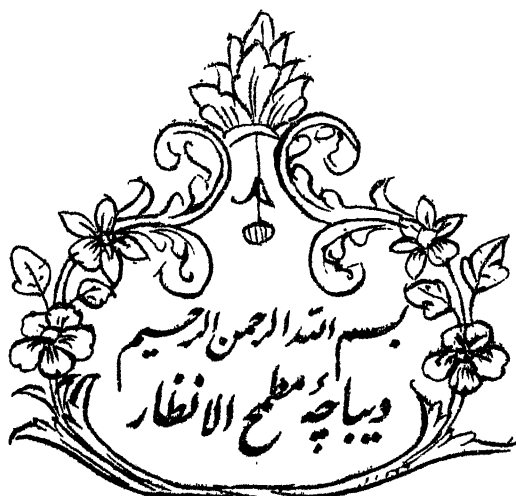 بسم الله الرحمن الرحيم
دیباچۂ مطمح الانظار